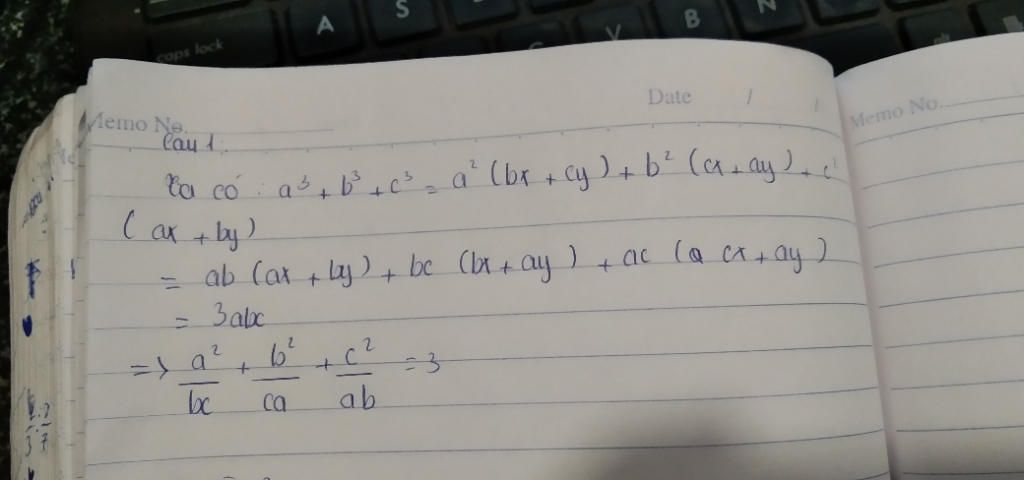 caps lock A S V B N alt
Memo No. Date / / Memo No.
Câu 1.
Ta có : a³ + b³ + c³ = a² (bx + cy) + b² (cx + ay) + c²
( ax + by)
= ab (ax + by) + bc (bx + ay ) + ac (a cx + ay )
= 3abc
=> a²/bc + b²/ca + c²/ab = 3